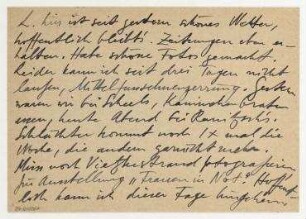 L. hier ist seit gestern schönes Wetter,
hoffentlich bleibt's. Zeitungen eben er-
halten. Habe schöne Fotos gemacht.
Leider kann ich seit drei Tagen nicht
laufen, Mittelfussnerzerrung. Gestern
waren wir bei Scheels, Kaninchenbraten
essen, heute Abend bei
Schlächter kommt noch 1x mal die
Woche, die andern garnicht mehr.
Muss noch fotografieren
für Ausstellung "Frauen in Not". Hoffent-
lich kann ich dieser Tage